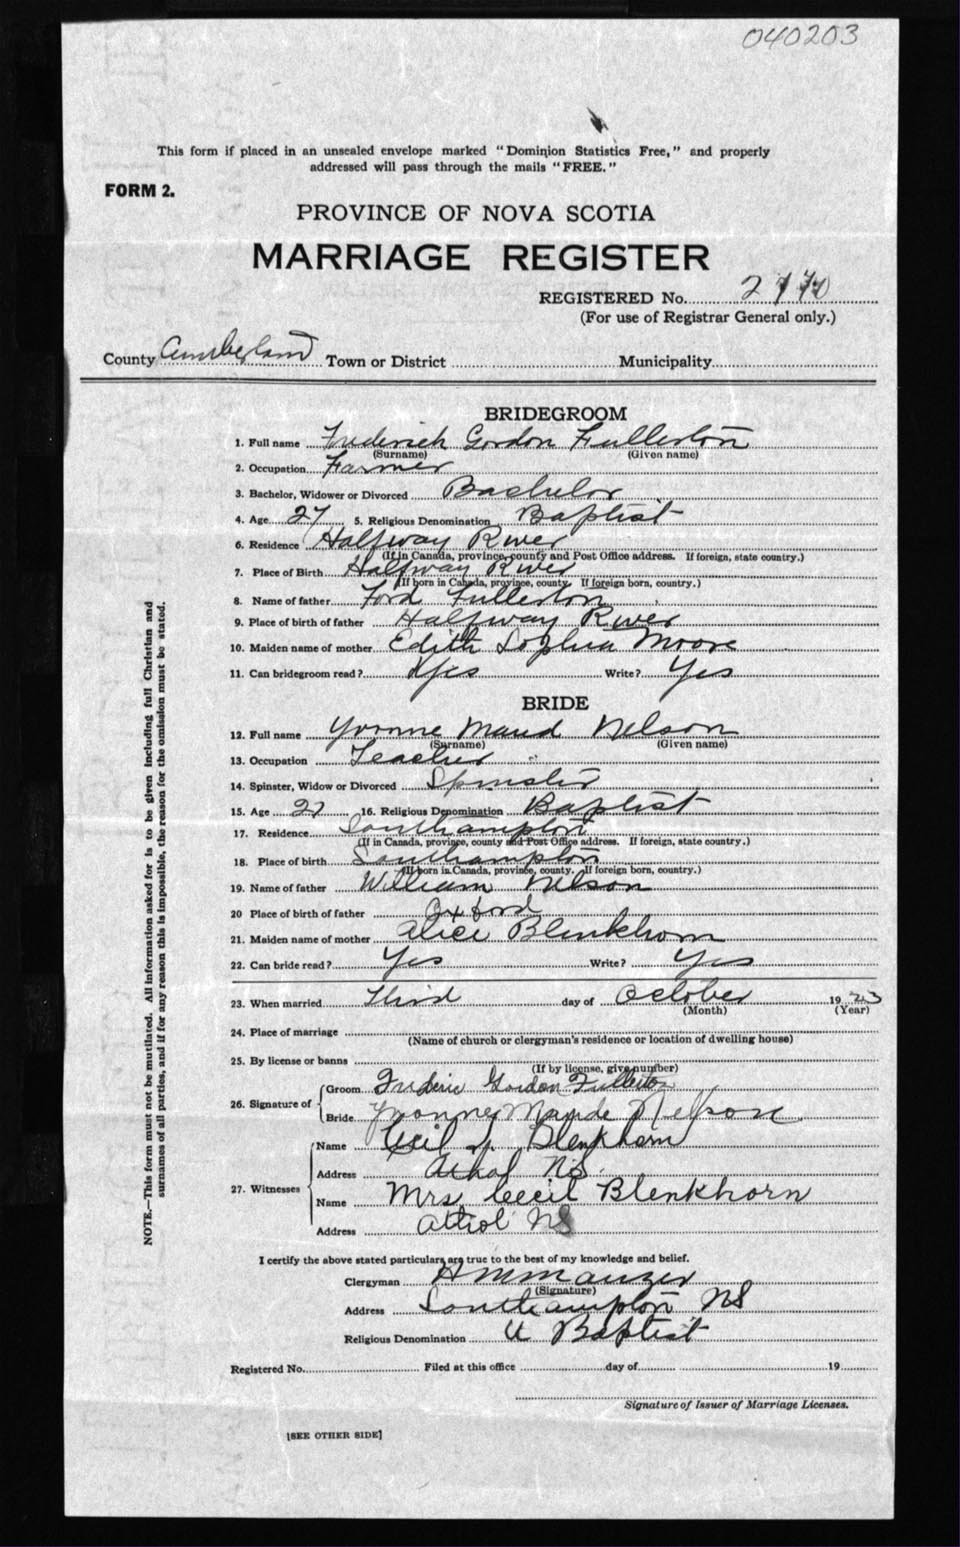 040203
This form if placed in an unsealed envelope marked "Dominion Statistics Free," and properly
addressed will pass through the mails "FREE."
FORM 2.
PROVINCE OF NOVA SCOTIA
MARRIAGE REGISTER
REGISTERED No.
(For use of Registrar General only.)
County Cumberland Town or District Municipality
BRIDEGROOM
1. Full name Frederick Gordon Fullerton
(Surname) (Given name)
2. Occupation Farmer
3. Bachelor, Widower or Divorced Bachelor
4. Age 27 5. Religious Denomination Baptist
6. Residence Halfway River
(If in Canada, province, county and Post Office address. If foreign, state country.)
7. Place of Birth Halfway River
(If born in Canada, province, county. If foreign born, country.)
8. Name of father Ford Fullerton
9. Place of birth of father Halfway River
10. Maiden name of mother Edith Sophia Moore
11. Can bridegroom read? Yes Write? Yes
BRIDE
12. Full name Yvonne Maud Nelson
(Surname) (Given name)
13. Occupation Teacher
14. Spinster, Widow or Divorced Spinster
15. Age 16. Religious Denomination Baptist
17. Residence Southampton
(If in Canada, province, county and Post Office address. If foreign, state country.)
18. Place of birth Southampton
(If born in Canada, province, county. If foreign born, country.)
19. Name of father William Nelson
20 Place of birth of father Oxford
21. Maiden name of mother Alice Blenkhorn
22. Can bride read? Yes Write? Yes
23. When married Third day of October 1923
(Month) (Year)
24. Place of marriage
(Name of church or clergyman's residence or location of dwelling house)
25. By license or banns
(If by license, give number)
26. Signature of
Groom Frederic Gordon Fullerton
Bride Yvonne Maude Nelson
27. Witnesses
Name Cecil Blenkhorn
Address Athol NS.
Name Mrs. Cecil Blenkhorn
Address Athol NS
I certify the above stated particulars are true to the best of my knowledge and belief.
Clergyman
(Signature)
Address Southampton NS
Religious Denomination U Baptist
Registered No. Filed at this office day of 19
Signature of Issuer of Marriage Licenses.
[SEE OTHER SIDE]
NOTE.—This form must not be mutilated. All information asked for is to be given including full Christian and
surnames of all parties, and if for any reason this is impossible, the reason for the omission must be stated.